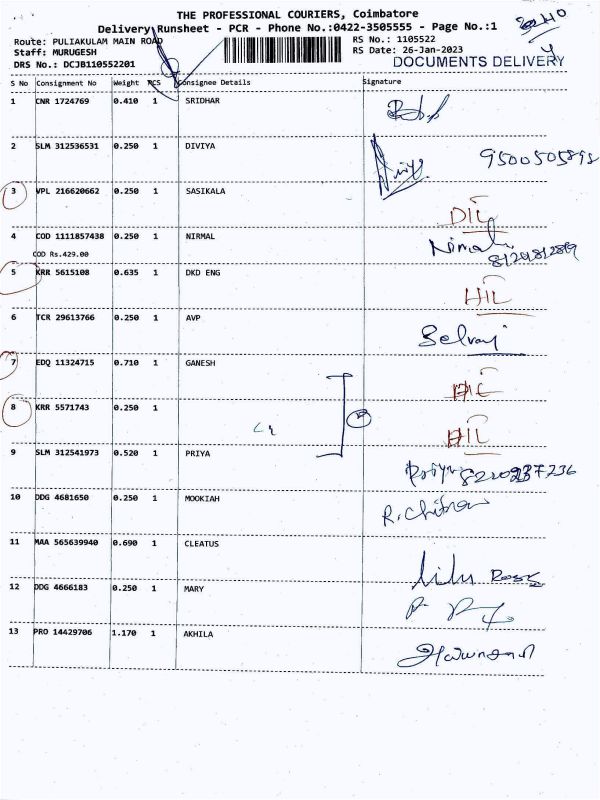 THE PROFESSIONAL COURIERS, Coimbatore
Delivery Runsheet - PCR - Phone No.:0422-3505555 - Page No.:1
Route: PULIAKULAM MAIN ROAD
RS No.: 1105522
Staff: MURUGESH
RS Date: 26-Jan-2023
DRS No.: DCJB110552201
DOCUMENTS DELIVERY
S No Consignment No Weight PCS Consignee Details Signature
1 CNR 1724769 0.410 1 SRIDHAR
2 SLM 312536531 0.250 1 DIVIYA 9500505892
3 VPL 216620662 0.250 1 SASIKALA
4 COD 1111857438 0.250 1 NIRMAL Nirmal
COD Rs.429.00
5 KRR 5615108 0.635 1 DKD ENG
6 TCR 29613766 0.250 1 AVP Selvaj
7 EDQ 11324715 0.710 1 GANESH
8 KRR 5571743 0.250 1
9 SLM 312541973 0.520 1 PRIYA Priya
10 DDG 4681650 0.250 1 MOOKIAH
11 MAA 565639940 0.690 1 CLEATUS
12 DDG 4666183 0.250 1 MARY
13 PRO 14429706 1.170 1 AKHILA